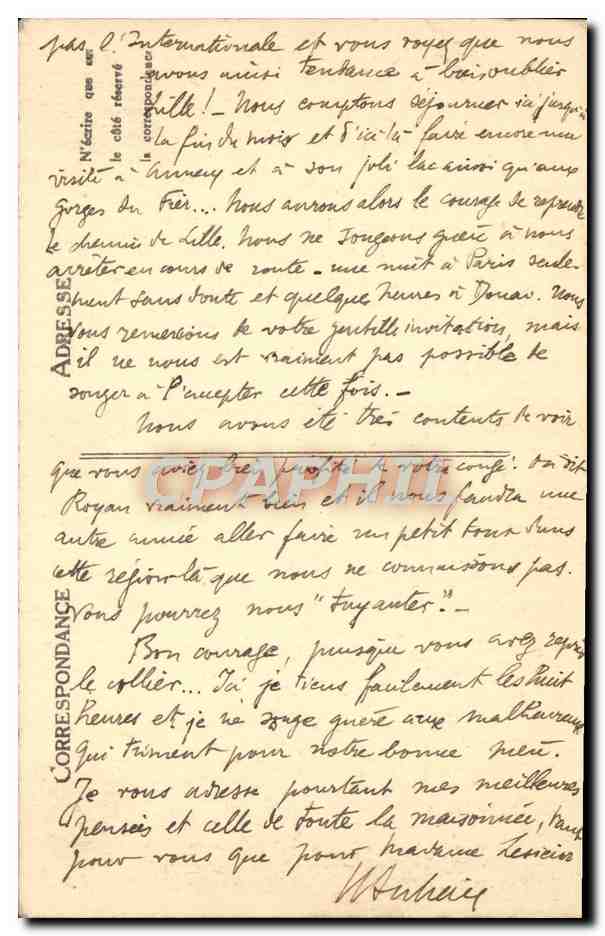 pas l'Internationale et vous voyez que nous
avons ainsi tendance à bien oublier
Lille! - Nous comptons séjourner ici jusqu'à
la fin du mois et d'ici là faire encore une
visite à Annecy et à son joli lac ainsi qu'aux
gorges du Fier... Nous aurons alors le courage de reprendre
le chemin de Lille. Nous ne songeons guère à nous
arrêter en cours de route - une nuit à Paris seule-
ment sans doute et quelques heures à Douai. Nous
vous remercions de votre gentille invitation, mais
il ne nous est vraiment pas possible de
songer à l'accepter cette fois. -
Nous avons été très contents de voir
que vous aviez bien profité de votre congé. On dit
Royan vraiment bien et il nous faudra une
autre année aller faire un petit tour dans
cette région là que nous ne connaissons pas.
Vous pourrez nous "tuyauter". -
Bon courage, puisque vous avez repris
le collier... Ici je tiens facilement les huit
heures et je ne songe guère aux malheureux
qui triment pour notre bonne
Je vous adresse pourtant mes meilleures
pensées et celle de toute la maisonnée, tant
pour vous que pour Madame
N'écrire que sur
le côté réservé
la correspondance
ADRESSE
CORRESPONDANCE
CPAPHIL